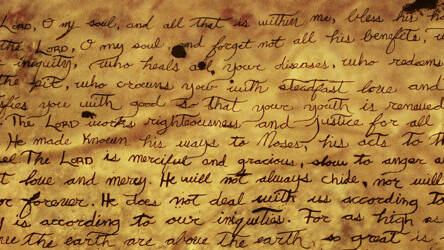 LORD, O my soul, and all that is within me, bless his h
the LORD, O my soul, and forget not all his benefits, w
iniquity, who heals all your diseases, who redeems
the pit, who crowns you with steadfast love and
fies you with good so that your youth is renewed
The LORD works righteousness and justice for all
He made known his ways to Moses, his acts to th
The LORD is merciful and gracious, slow to anger a
t love and mercy. He will not always chide, nor will
r forever. He does not deal with us according to
y is according to our iniquities. For as high as
the earth are above the earth, so great is